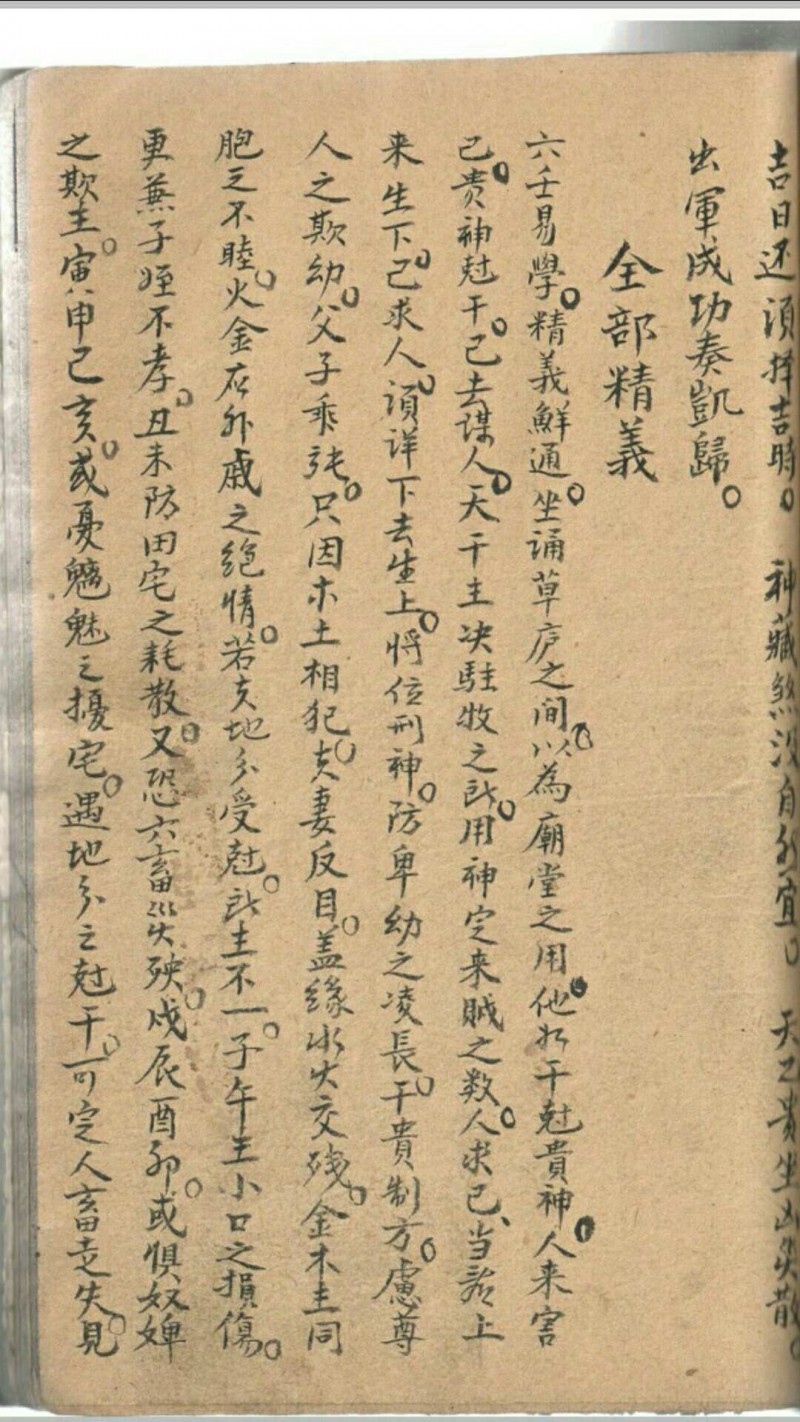 吉日还須择吉時。　神藏煞没自然宜。　天乙貴坐凶失散。
出軍成功奏凱歸。
全部精義
六壬易學。精義鮮通。坐誦草庐之间。以為廟堂之用。他如干尅貴神。人来害
己。贵神尅干。己去謀人。天干主决駐牧之所。用神定来贼之数。人求己、当看上
来生下。己求人。須详下去生上。将位刑神。防卑幼之凌長。干貴制方。慮尊
人之欺幼。父子乖張。只因木土相犯。夫妻反目。盖缘水火交残。金木主同
胞之不睦。火金在外戚之绝情。若夫地分受尅。所主不一。子午主小口之損傷。
更兼子姪不孝。丑未防田宅之耗散。又恐六畜災殃。戍辰酉卯。或惧奴婢
之欺主。寅申己亥。或憂魑魅之擾宅。遇地分之尅干。可定人畜走失。見